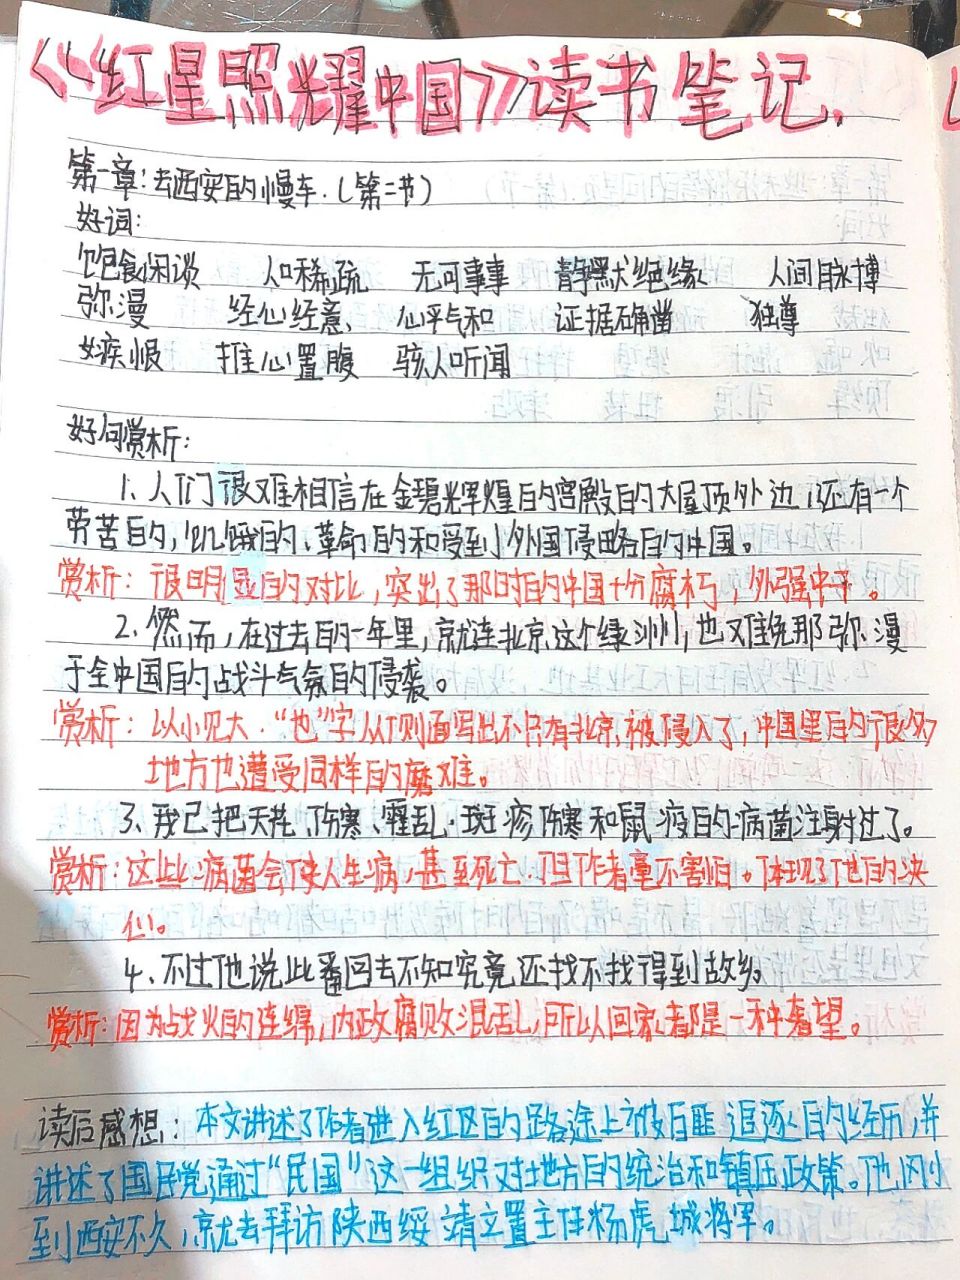 《红星照耀中国》读书笔记.
第一章:去西安的慢车.(第二节)
好词:
饱食闲谈 人口稀疏 无可事事 静默绝缘 人间脉搏
弥漫 经心经意、 心平气和 证据确凿 独尊
嫉恨 推心置腹 骇人听闻
好句赏析:
1、人们很难相信在金碧辉煌的宫殿的大屋顶外边,还有一个
劳苦的,饥饿的、革命的和受到外国侵略的中国。
赏析:很明显的对比,突出了那时的中国十分腐朽,外强中干。
2、然而,在过去的一年里,就连北京这个绿洲,也难免那弥漫
于全中国的战斗气氛的侵袭。
赏析:以小见大."也"字从侧面写出不只有北京被侵入了,中国里的很多
地方也遭受同样的磨难。
3、我已把天花、伤寒、霍乱.斑疹伤寒和鼠疫的病菌注射过了。
赏析:这些病菌会使人生病,甚至死亡.但作者毫不害怕。体现了他的决
心。
4、不过他说此番回去不知究竟还找不找得到故乡。
赏析:因为战火的连绵,内政腐败混乱,所以回家都是一种奢望。
读后感想:本文讲述了作者进入红区的路途上被白匪追逐的经历,并
讲述了国民党通过"民团"这一组织对地方的统治和镇压政策。他刚
到西安不久,就去拜访陕西绥靖立置主任杨虎城将军。